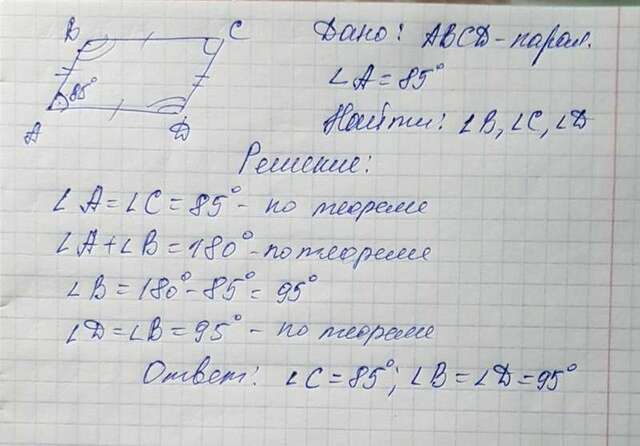 B C
85°
A D
Дано: ABCD - парал.
∠A = 85°
Найти: ∠B, ∠C, ∠D
Решение:
∠A = ∠C = 85° - по теореме
∠A + ∠B = 180° - по теореме
∠B = 180° - 85° = 95°
∠D = ∠B = 95° - по теореме
Ответ: ∠C = 85°; ∠B = ∠D = 95°